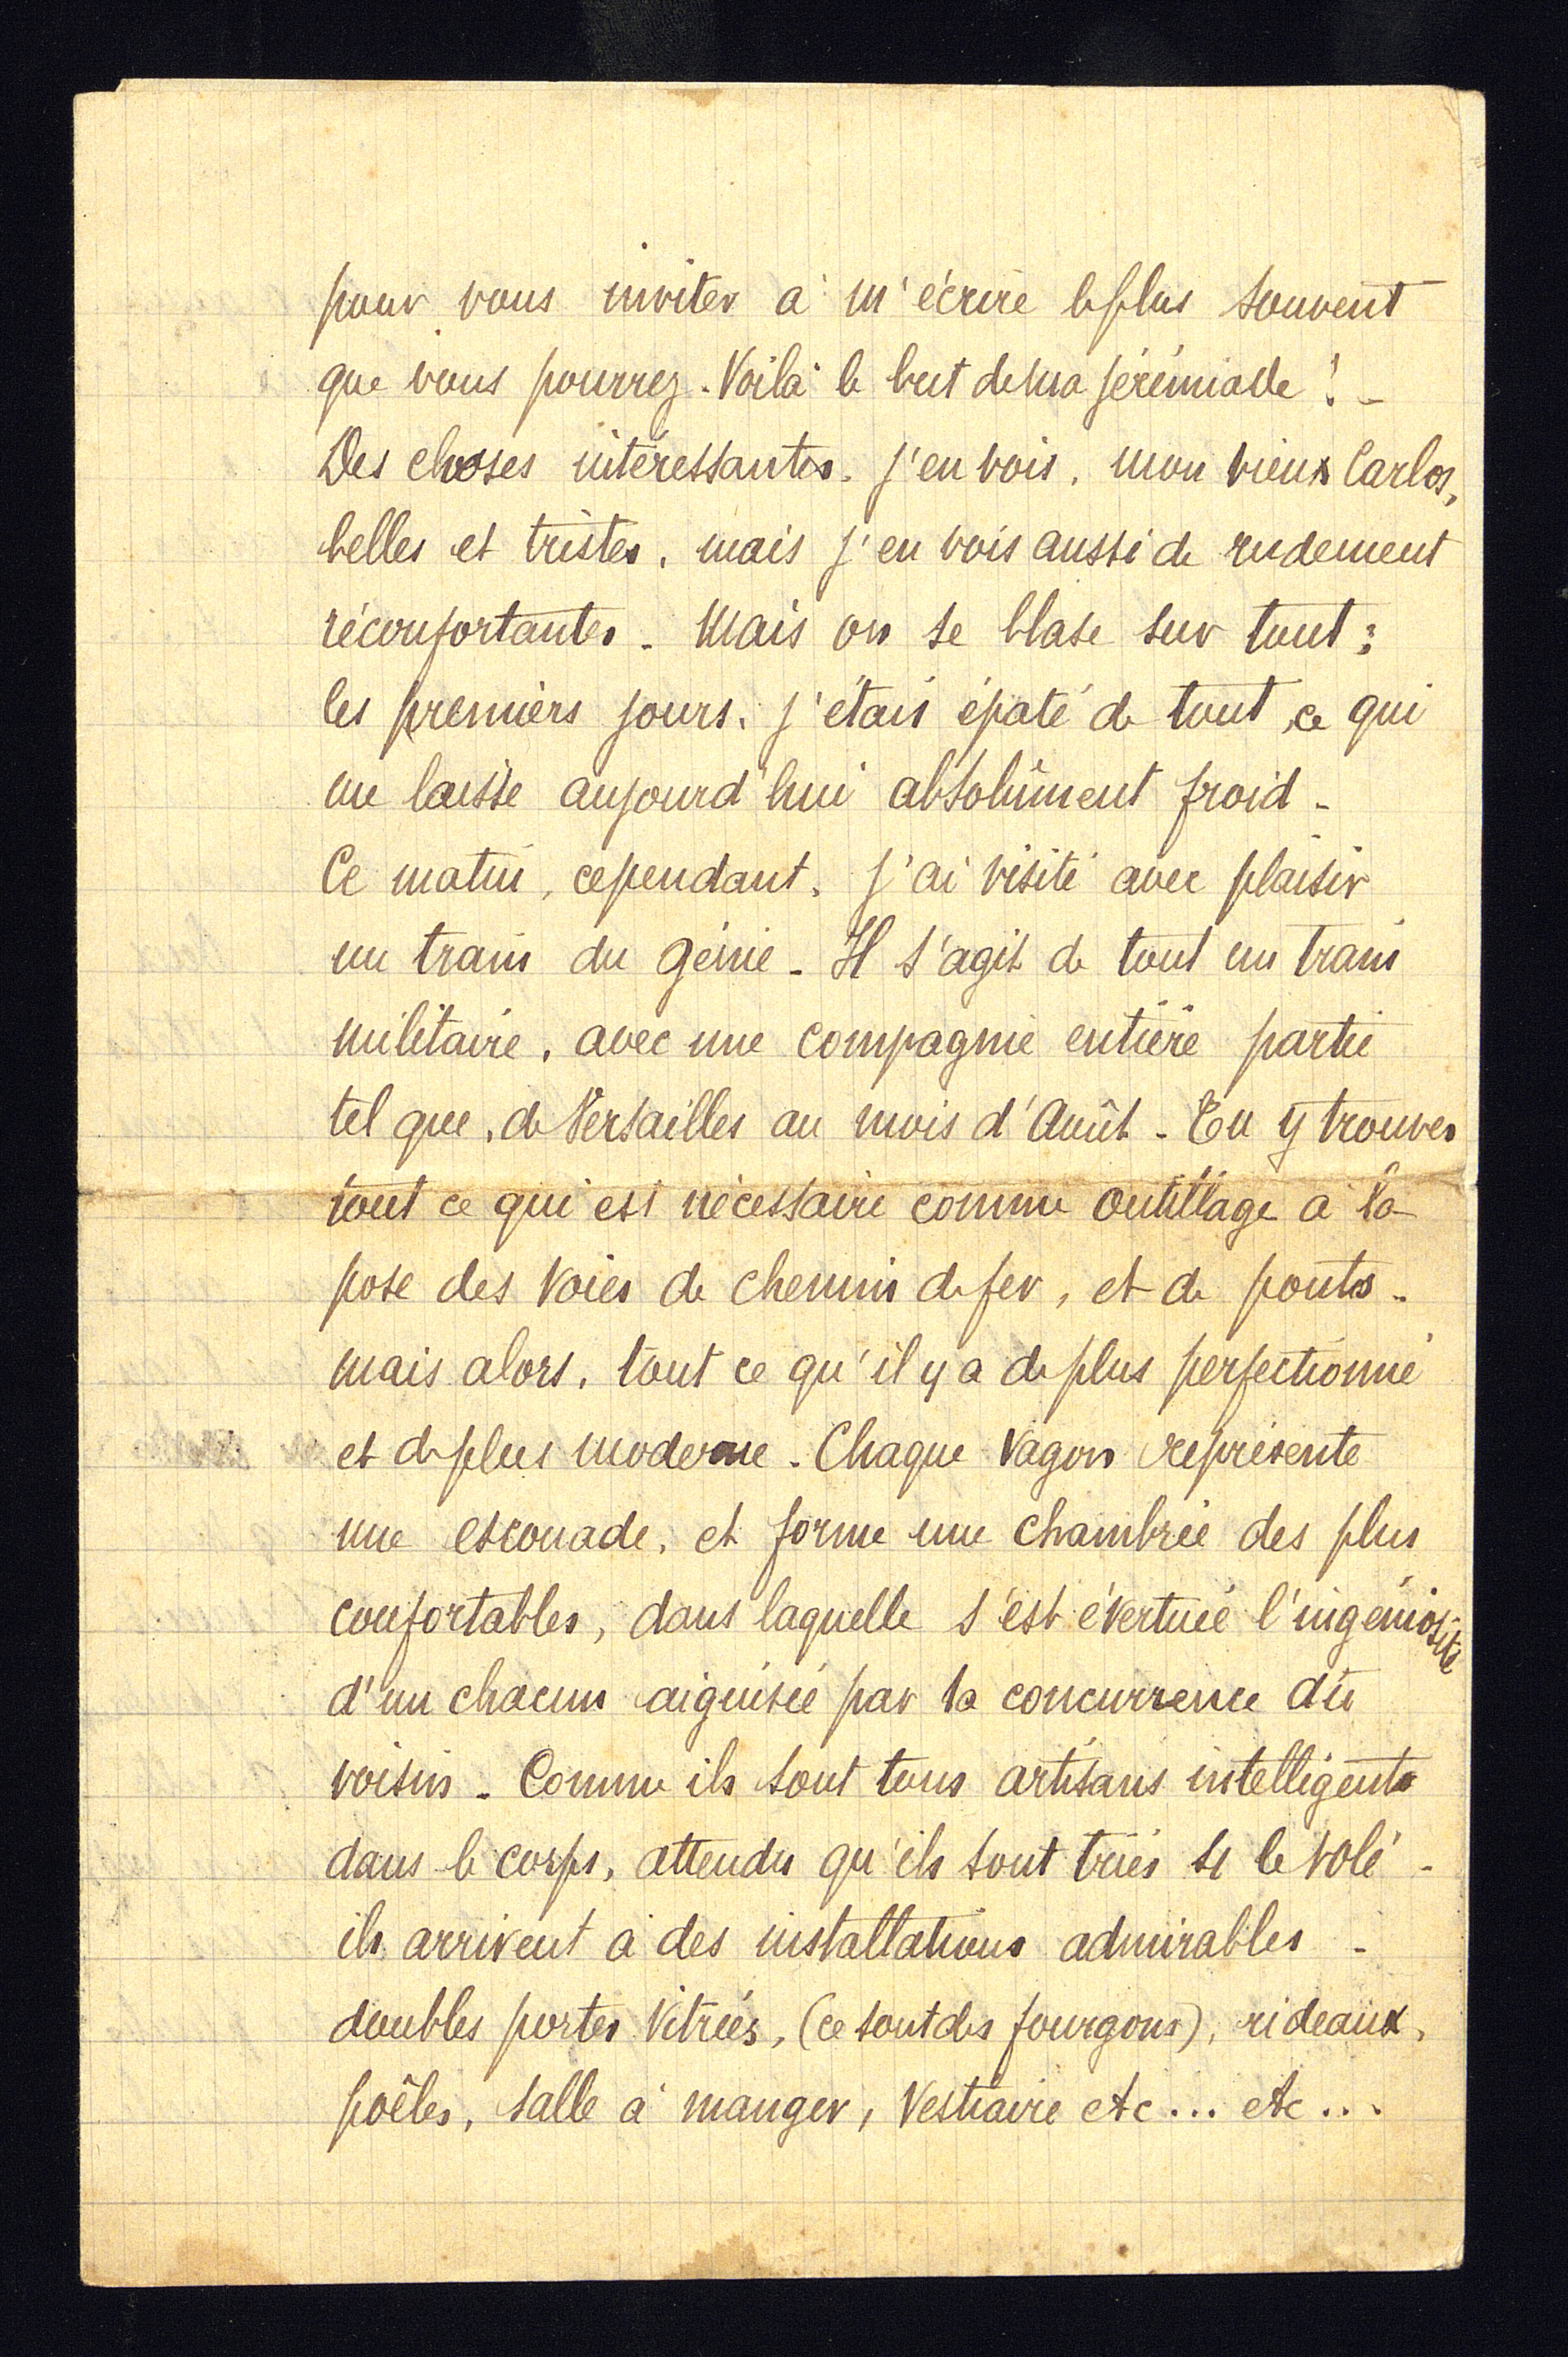 pour vous inviter à m'écrire le plus souvent
que vous pourrez. Voilà le but de ma jérémiade ! -
Des choses intéressantes. j'en vois, mon vieux Carlos,
belles et tristes, mais j'en vois aussi de rudement
réconfortantes - Mais on se blase sur tout ;
les premiers jours, j'étais épaté de tout ce qui
me laisse aujourd'hui absolûment froid -
Ce matin, cependant, j'ai visité avec plaisir
un train du génie - Il s'agit de tout un train
militaire, avec une compagnie entière partie
tel que, de Versailles au mois d'Août - Tu y trouves
tout ce qui est nécessaire comme outillage à la
pose des voies de chemin de fer, et de ponts -
mais alors, tout ce qu'il y a de plus perfectionné
et de plus moderne - Chaque vagon représente
une escouade, et forme une chambrée des plus
confortables, dans laquelle s'est évertuée l'ingéniosité
d'un chacun aiguisée par la concurrence du
voisin - Comme ils sont tous artisans intelligents
dans le corps, attendu qu'ils sont triés s/ le volé -
ils arrivent à des installations admirables -
doubles portes vitrées, (ce sont des fourgons), rideaux,
poêles, salle à manger, vestiaire etc... etc...